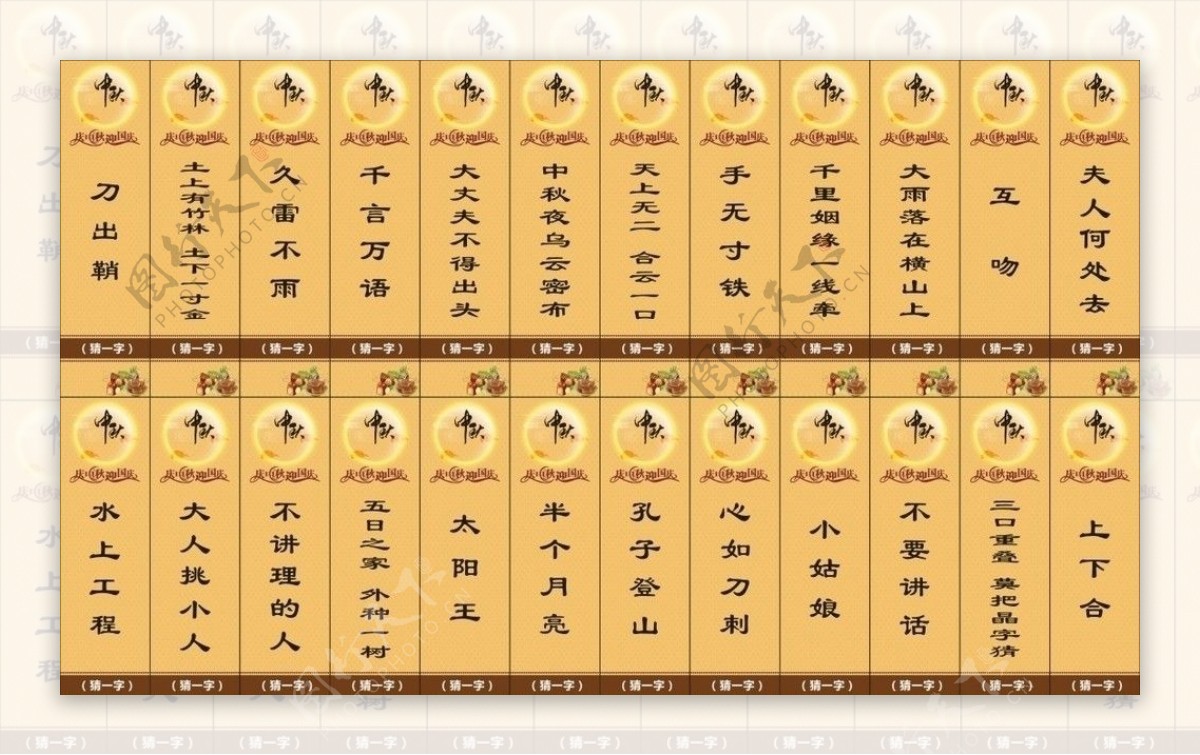 中秋
庆中秋迎国庆
刀出鞘
（猜一字）
中秋
庆中秋迎国庆
土上有竹林 土下一寸金
（猜一字）
中秋
庆中秋迎国庆
久雷不雨
（猜一字）
中秋
庆中秋迎国庆
千言万语
（猜一字）
中秋
庆中秋迎国庆
大丈夫不得出头
（猜一字）
中秋
庆中秋迎国庆
中秋夜乌云密布
（猜一字）
中秋
庆中秋迎国庆
天上无二 合云一口
（猜一字）
中秋
庆中秋迎国庆
手无寸铁
（猜一字）
中秋
庆中秋迎国庆
千里姻缘一线牵
（猜一字）
中秋
庆中秋迎国庆
大雨落在横山上
（猜一字）
中秋
庆中秋迎国庆
互吻
（猜一字）
中秋
庆中秋迎国庆
夫人何处去
（猜一字）
中秋
庆中秋迎国庆
水上工程
（猜一字）
中秋
庆中秋迎国庆
大人挑小人
（猜一字）
中秋
庆中秋迎国庆
不讲理的人
（猜一字）
中秋
庆中秋迎国庆
五日之家 外种一树
（猜一字）
中秋
庆中秋迎国庆
太阳王
（猜一字）
中秋
庆中秋迎国庆
半个月亮
（猜一字）
中秋
庆中秋迎国庆
孔子登山
（猜一字）
中秋
庆中秋迎国庆
心如刀刺
（猜一字）
中秋
庆中秋迎国庆
小姑娘
（猜一字）
中秋
庆中秋迎国庆
不要讲话
（猜一字）
中秋
庆中秋迎国庆
三口重叠 莫把晶字猜
（猜一字）
中秋
庆中秋迎国庆
上下合
（猜一字）